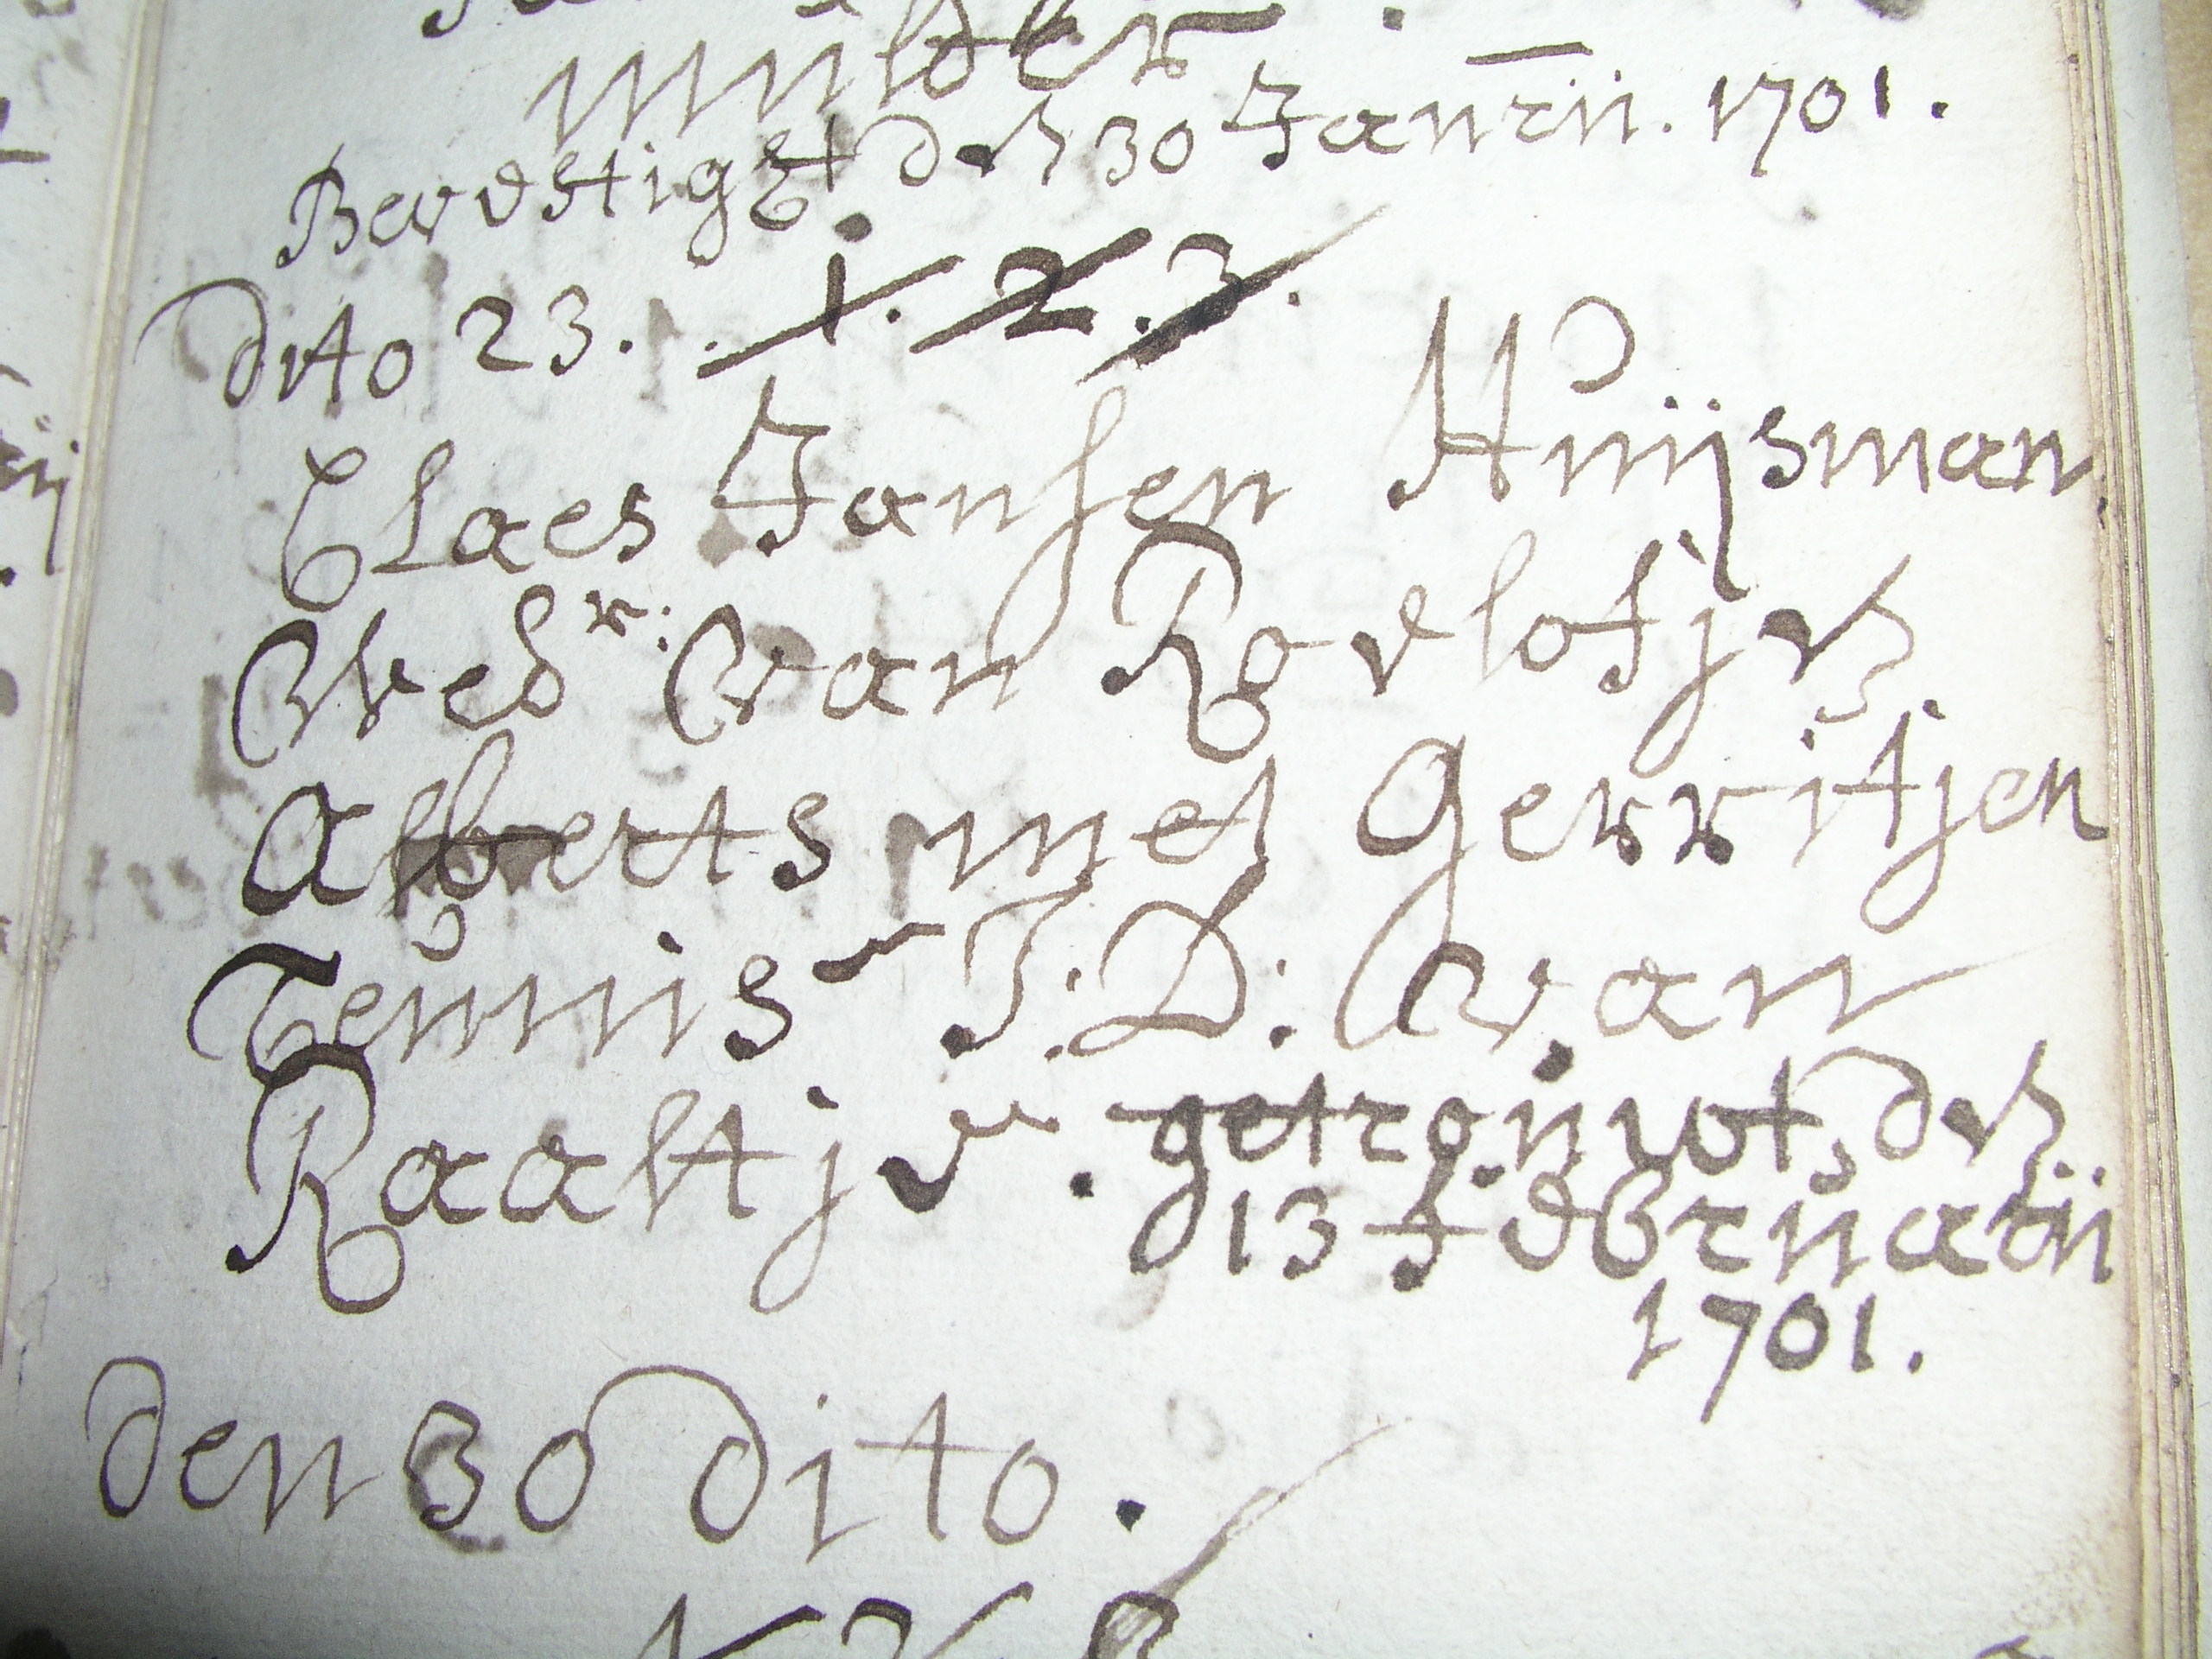 mulder
Bevestight den 30 Janrii. 1701.
dito 23. . 1. 2. 3.
Claes Jansen Huijsman
Wedr: van Roelofjen
Alberts met Gerritjen
Teunis J: D: van
Raaltje. getrouwt den
13 Februarii
1701.
den 30 dito.
1 2 3